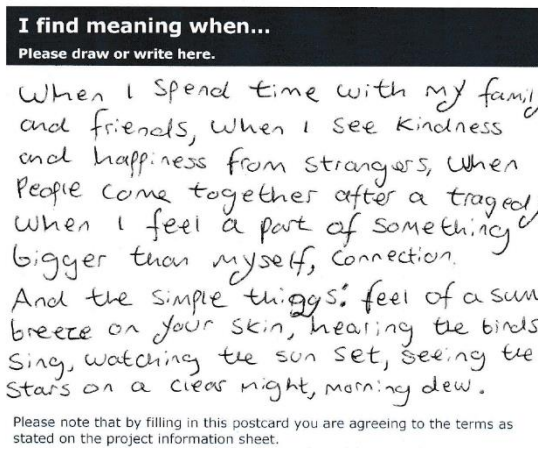 I find meaning when...
Please draw or write here.
When I spend time with my family
and friends, when I see kindness
and happiness from strangers, when
People come together after a traged
when I feel a part of something
bigger than myself, connection.
And the simple things: feel of a sum
breeze on your skin, hearing the birds
sing, watching the sun set, seeing the
stars on a clear night, morning dew.
Please note that by filling in this postcard you are agreeing to the terms as
stated on the project information sheet.